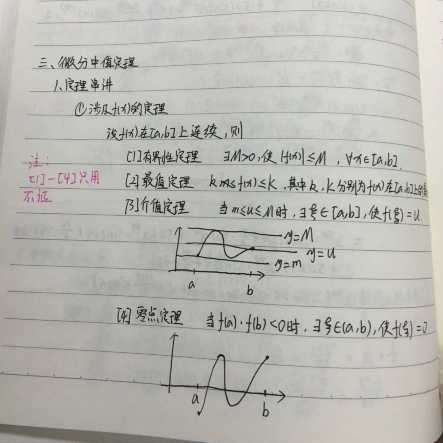 三、微分中值定理
1.定理串讲
①涉及f(x)的定理
设f(x)在[a,b]上连续,则
注:
[1]-[4]只用
不证
[1]有界性定理 ∃M>0,使|f(x)|≤M,∀x∈[a,b].
[2]最值定理 k≤f(x)≤K,其中k,K分别为f(x)在[a,b]上的
[3]介值定理 当m≤u≤M时,∃ξ∈[a,b],使f(ξ)=u.
y=M
y=u
y=m
a b
[4]零点定理 当f(a)·f(b)<0时,∃ξ∈(a,b),使f(ξ)=0
a b